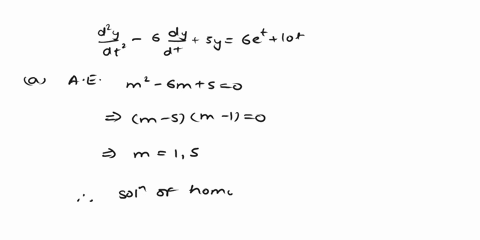 d²y/dt² - 6 dy/dt + 5y = 6e^t + 10t
(a) A.E. m² - 6m + 5 = 0
⇒ (m-5)(m-1) = 0
⇒ m = 1, 5
∴ solⁿ of homo